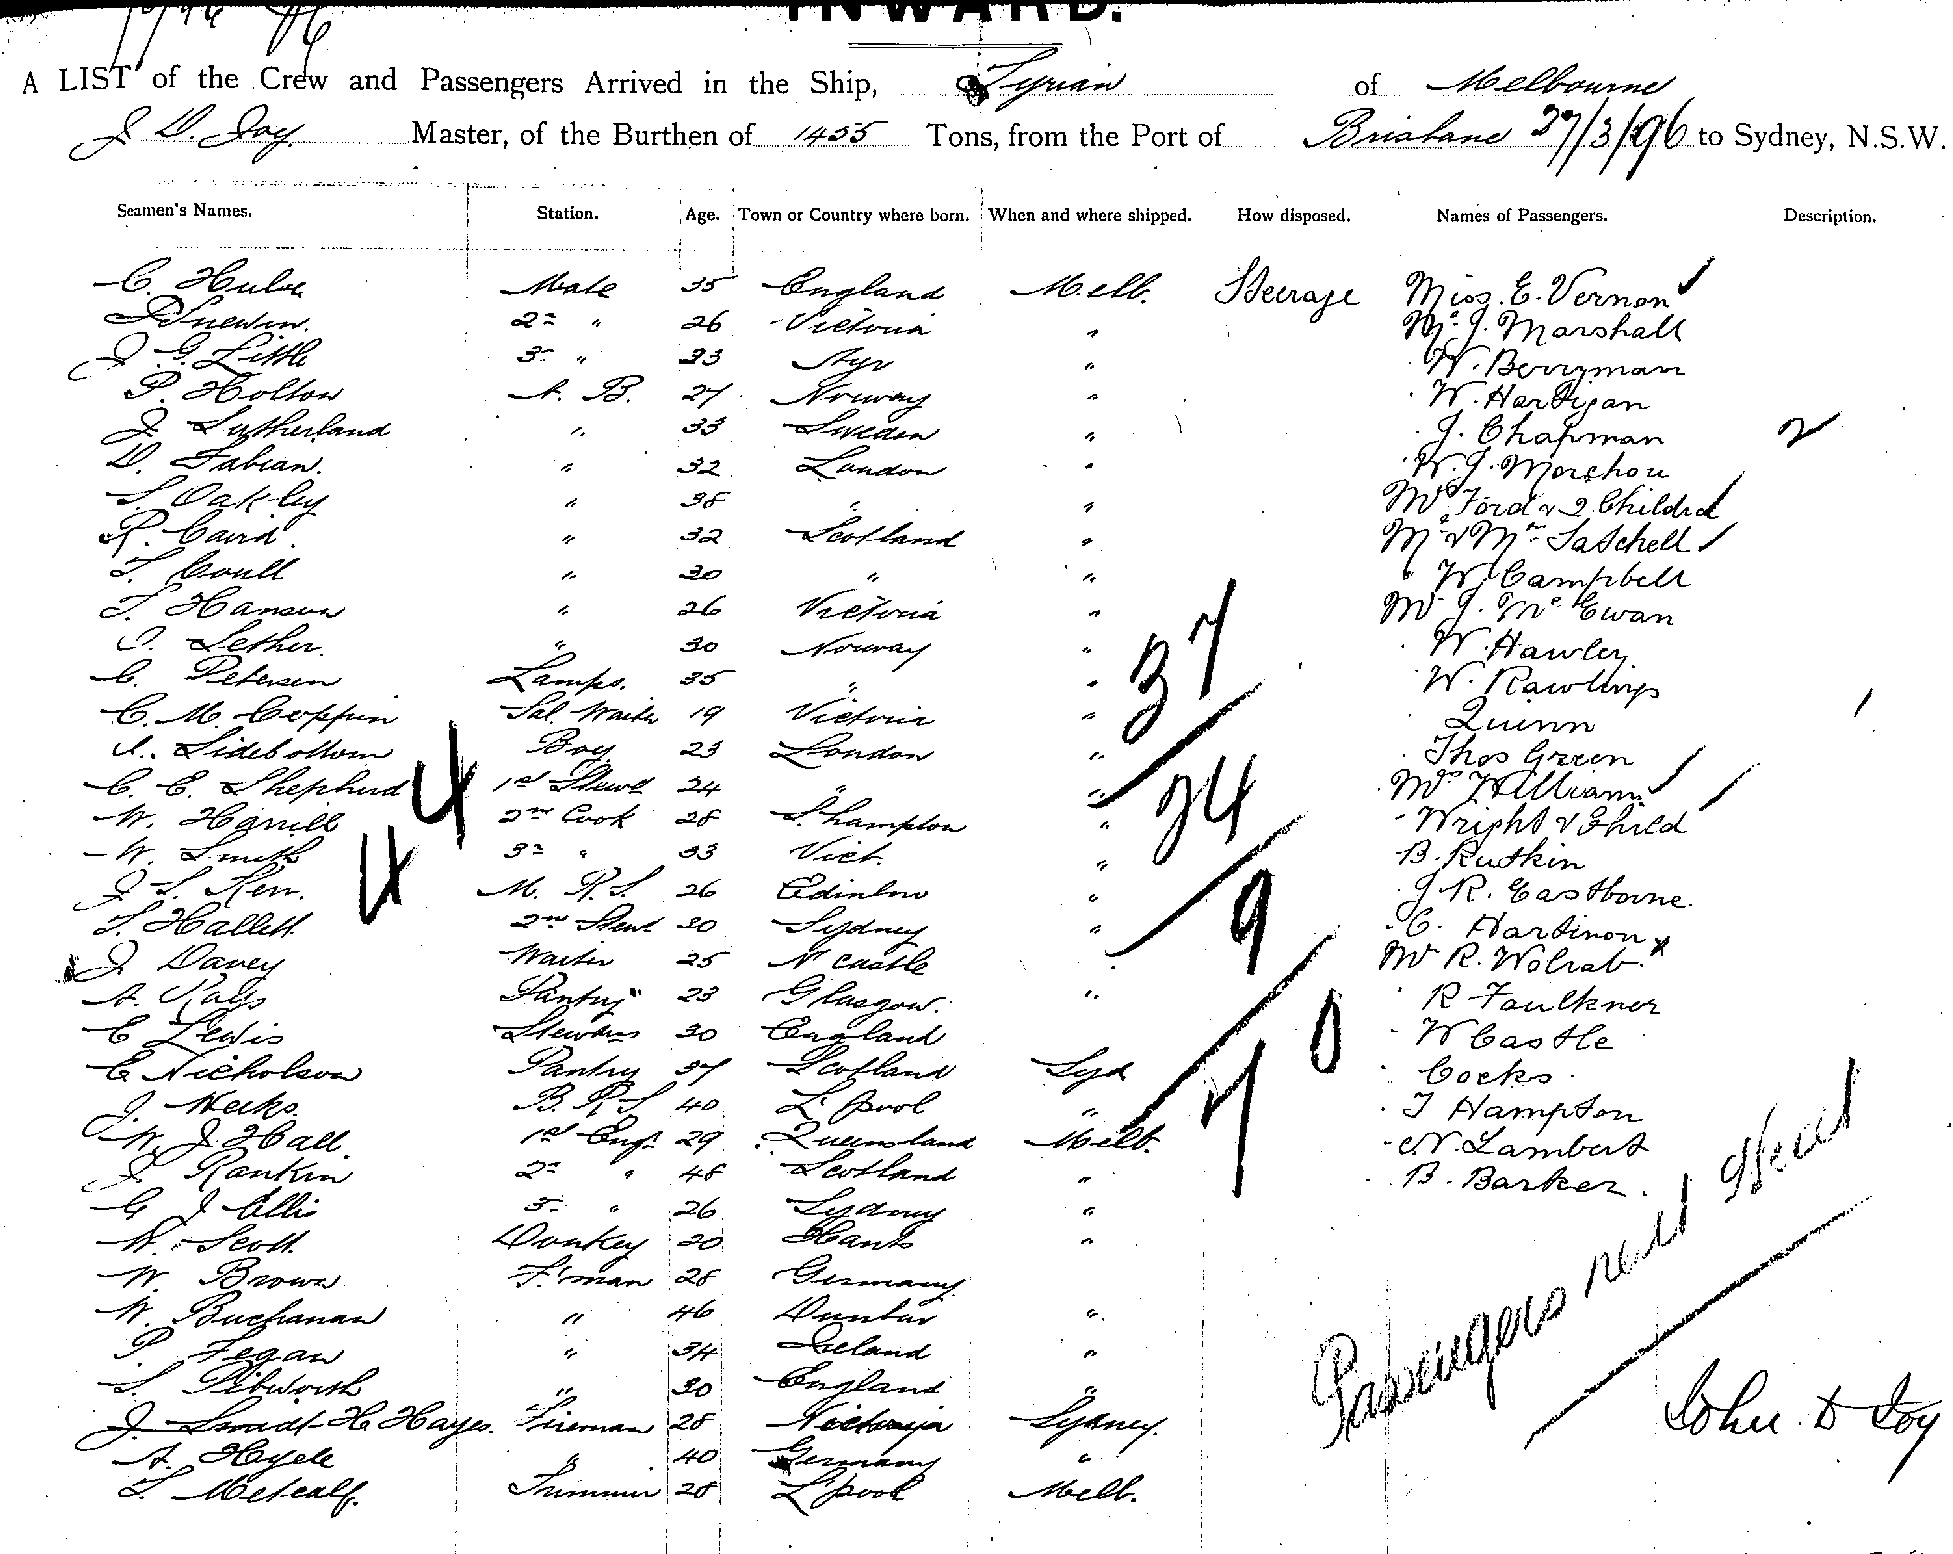 INWARD.
A LIST of the Crew and Passengers Arrived in the Ship, Tyrian of Melbourne
J D. Joy Master, of the Burthen of 1455 Tons, from the Port of Brisbane 27/3/96 to Sydney, N.S.W.
Seamen's Names. Station. Age. Town or Country where born. When and where shipped. How disposed. Names of Passengers. Description.
C. Mate 35 England Melb. Steerage Miss. E. Vernon
2nd " 26 Victoria " Mr J. Marshall
J G. Little 3rd " 33 Ayr " W. Berryman
P. Holton A. B. 27 Norway " W. Hartigan
J. Sutherland " 33 Sweden " J. Chapman 2
D. Fabian. " 32 London " W. J.
S. Oakley " 38 " " Mrs Ford & 2 Childrd
R. Caird. " 32 Scotland " Mr & Mrs Satchell
T. Coull " 30 " " W. Campbell
T. Hansen " 26 Victoria " Mr J. Mc Ewan
Lether. " 30 Norway " W. Hawley.
C. Petersen Lamps. 35 " " W. Rawlings
C. M. Coppin Sal. Waiter 19 Victoria " Quinn
A. Sidebottom Boy 23 London " Thos Green
C. E. Shepherd 1st Stewd 24 " " Mrs Williams
W. Harrill 2nd Cook 28 S. hampton " Wright & Child
W. Smith 3rd " 33 Vict. " B. Rutkin
J. S. Kerr. M. R. S. 26 Edinbro " J R. Eastborne.
T. Hallett 2nd Stewd 30 Sydney " C. Hartinon
J. Davey Waiter 25 N castle " Mr R. Wolrab. x
A. Rays Pantry 23 Glasgow. " R Faulkner
C Lewis Stewdrs 30 England W Castle
C Nicholson Pantry 37 Scotland Syd Cocks
J. Weeks. B. R S. 40 L'pool " T Hampton
W. J. Hall. 1st Engr. 29 Queensland Melb. N. Lambert
J. Rankin 2nd " 48 Scotland " B. Barker.
G J Ellis 3rd " 26 Sydney "
W. Scott Donkey 30 Hants "
W. Brown F'man 28 Germany
W. Buchanan " 46 Dunbar "
P. Fegan " 34 Ireland "
S. Pibworth " 30 England "
J. Smidt H Hayes. Fireman 28 Victoria Sydney.
A. Heyde " 40 Germany "
T. Metcalf. Trimmer 28 L'pool Melb.
44
37
24
9
70
Passengers
John. D Joy